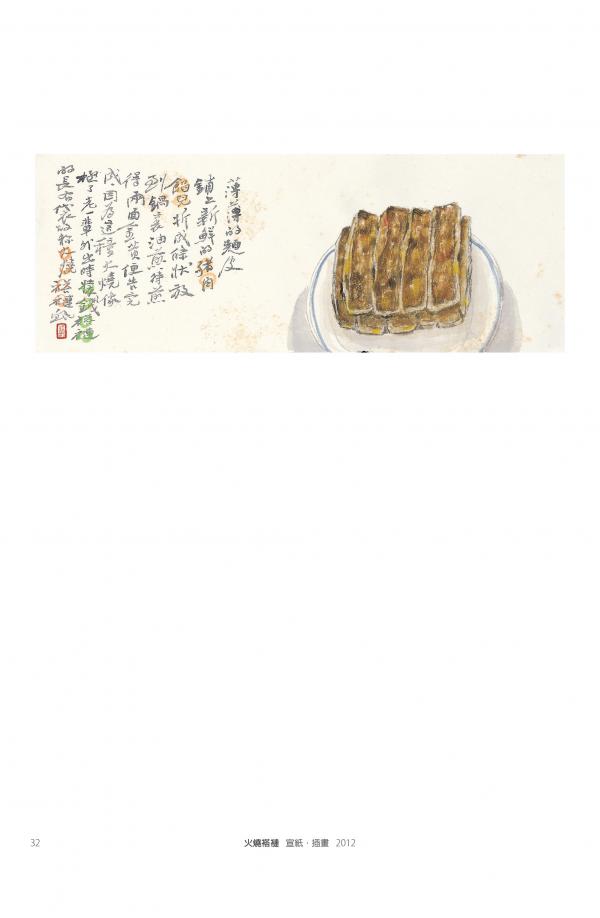 薄薄的麵皮
鋪上新鮮的豬肉
餡兒折成條狀放
到鍋裏油煎待煎
得兩面金黃便告完
成因為這種火燒像
極了老一輩外出時裝錢褡褳
的長袋称火燒褡褳
32
火燒褡褳 宣紙・插畫 2012